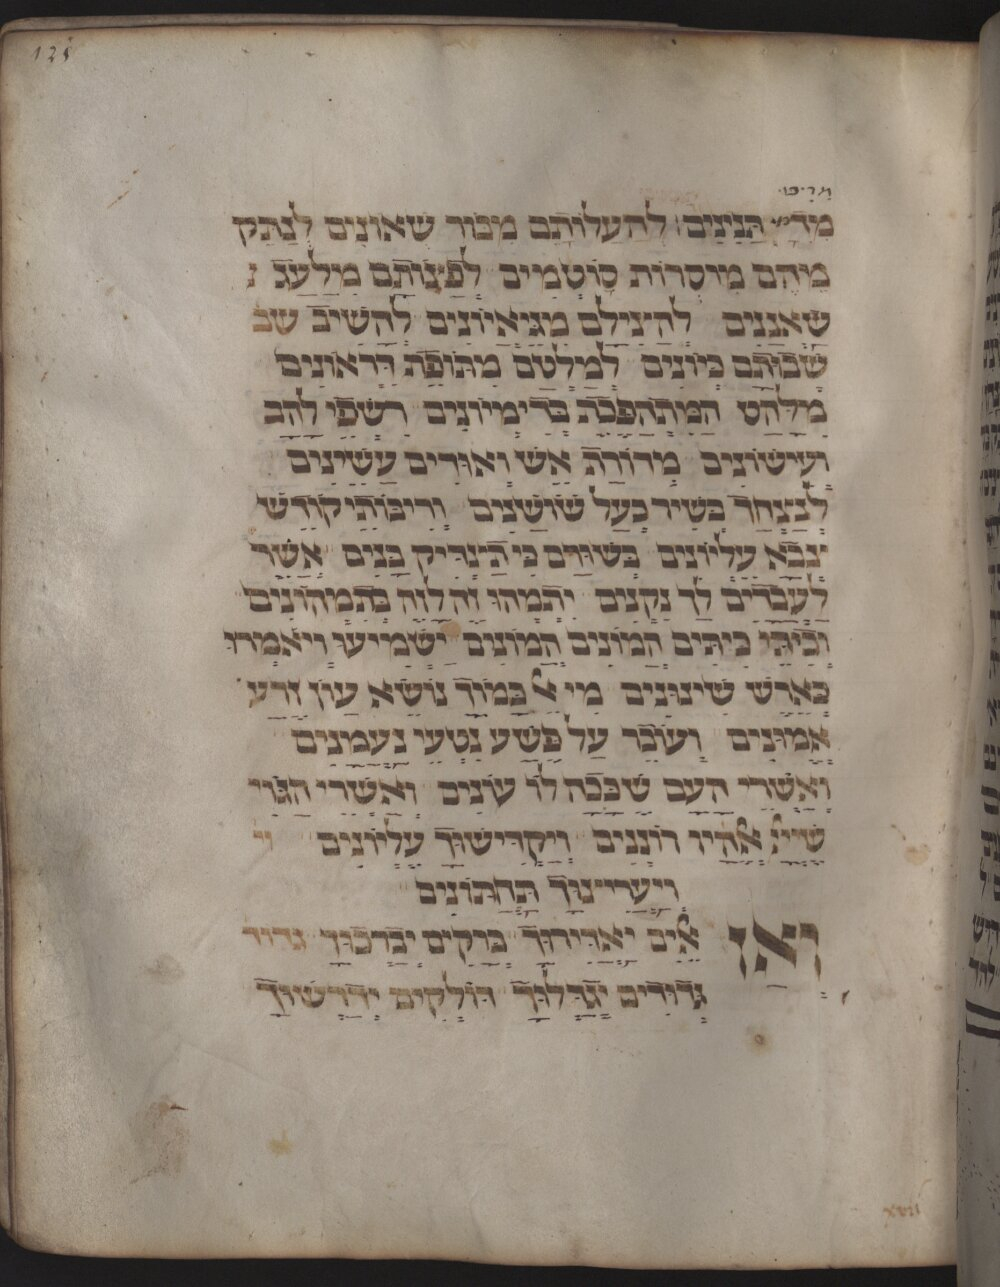 125
מדץ תנינים להעלותם מבור שאונים לנתק
מהם מוסרות סוטמים לפצותם מלעג
שאננים להצילם מגיאיונים להשיב שב
שבותם כיונים למלטם מתופת דראונים
מלהט המתהפכת בדימיונים רשפי להב
ועישונים מדורת אש ואודים עשינים
לנצחך בשיר בעל שושנים וריבותי קודש
צבא עליונים בשורם כי תינדיק בנים אשר
לעברים לך נקנים יתמהו זה לזה כתמהונים
וכיתי כיתים המונים המונים ישמיעו ויאמרו
בארש שינונים מי אל כמוך נושא עון זרע
אמונים ועובר על פשע נטעי נעמנים
ואשרי העם שככה לו עונים ואשרי הגוי
שייי אלהיו רוננים ויקדישוך עליונים
ויעריצוך תחתונים
ואז
אים יאדירוך ברקים יברכוך גדוד
גדודים יגדלוך דולקים ידרשוך